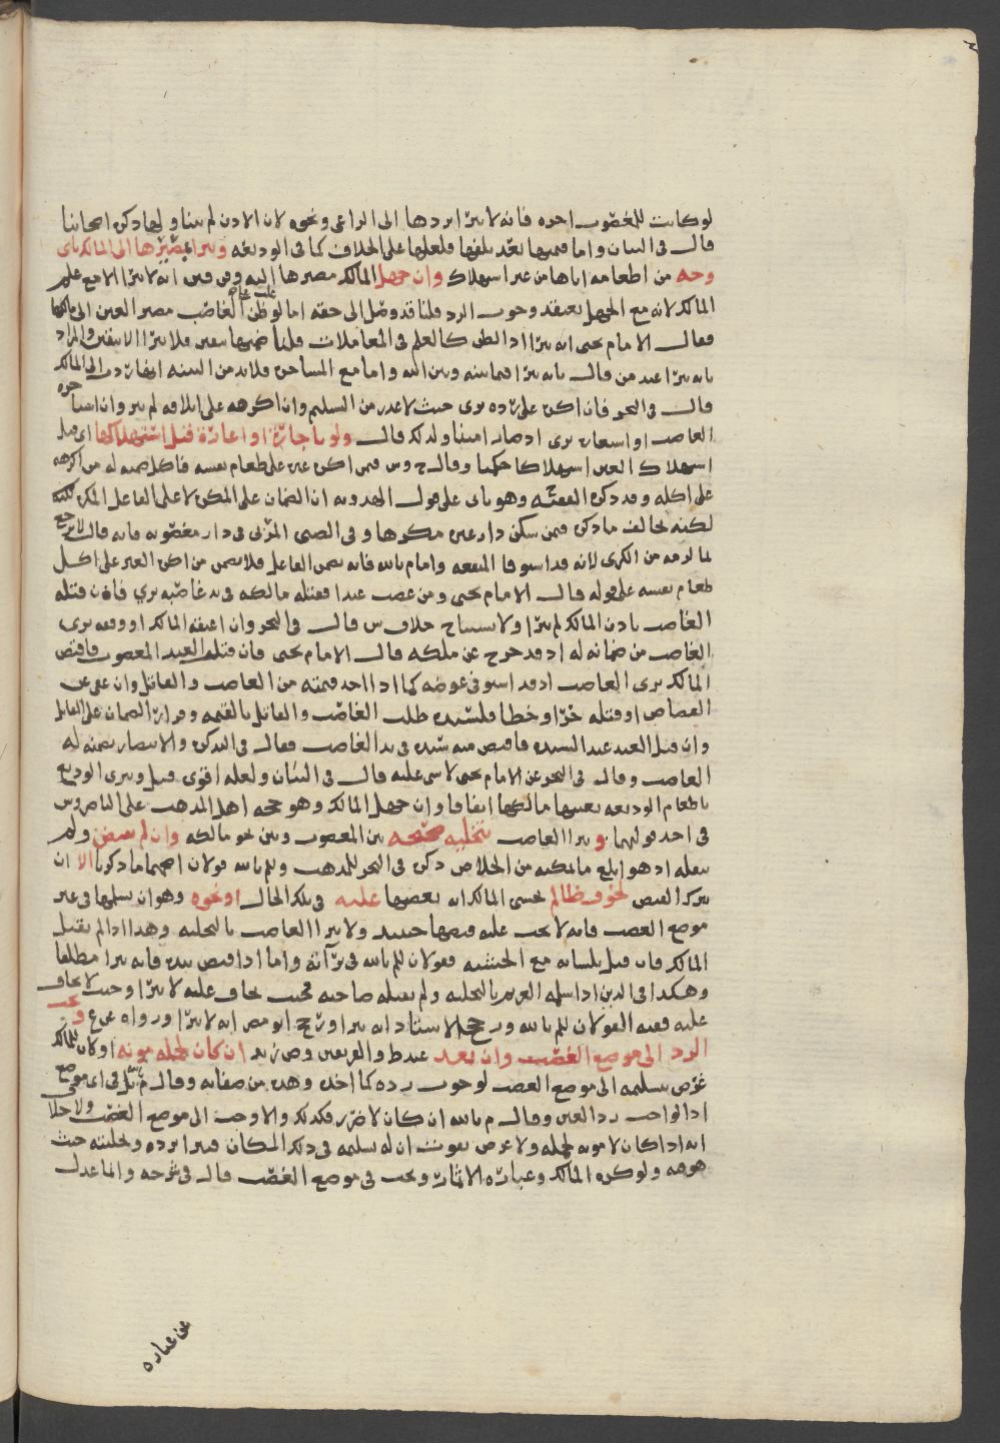 لو كانت للمغصوب اجره فانه لا يبرا بردها الى الراعي ونحوه لان الاذن لم يتناولها ذكره اصحابنا
قال في البيان واما قيمتها بعد تلفها فلعلها على الخلاف كما في الوديعه ويبرا بمصيرها الى المالك باي
وجه من اطعامه اياها من غير استهلاك وان جهل المالك مصيرها اليه وفي انه لا يبرا الا مع علم
المالك لانه مع الجهل يعتقد وجوب الرد قلنا قد وصل الى حقه اما لو ظن الغاصب مصير العين الى مالكها
فقال الامام يحيى انه يبرا اذ الظن كالعلم في المعاملات قلنا ضمنها بيقين فلا يبرا الا بيقين والمراد
بانه يبرا عند من قال بانه يبرا فيما بينه وبين الله واما مع المشاجره فلا بد من البينه انها ردت الى المالك
قال في البحر فان اكره على رده بري حيث لا عذر من التسليم وان اكرهه على اتلافه لم يبر وان استاجره
الغاصب او استعاره بري اذ صار امينا ولذلك قال ولو باجارة او اعارة قبل استهلاكها اي قبل
استهلاك العين استهلاكا حكميا وقال فيمن اكره غيره على طعام نفسه فاكل ضمنه له من اكرهه
على اكله وقد ذكره الفقيه وهو ياتي على قول الهدويه ان الضمان على المكره لا على الفاعل المكره
لكنه يخالف ما ذكره فيمن سكن دار غيره مكرها وفي الصبي المربى في دار مغصوبه فانه قال لا يرجع
بما لزمه من الكرى لانه قد استوفا المنفعه وامام بالله فانه يضمن الفاعل فلا يضمن من اكره الغير على اكل
طعام نفسه على قوله قال الامام يحيى ومن غصب عبدا فقتله مالكه في يد غاصبه بري فان قتله
الغاصب باذن المالك لم يبرا ولا يستباح خلاف س قال في البحر وان اعتقه المالك او وقفه بري
الغاصب من ضمانه له اذ قد خرج عن ملكه قال الامام يحيى فان قتله العبد المغصوب فاقتص
المالك بري الغاصب اذ قد استوفى عوضه كما اذا اخذ قيمته من الغاصب والقاتل وان عفى عن
القصاص او قتله حرا و خطا فلسيده طلب الغاصب والقاتل بالقيمه وقرار الضمان على القاتل
وان قتل العبد عبدا لسيده فاقتص منه سيده في يد الغاصب فقال في التذكره والانتصار يضمنه له
الغاصب وقال في البحر عن الامام يحيى لا شي عليه قال في البيان ولعله اقوى قيل ويبرى الوديع
باطعام الوديعه بعينها مالكها اتفاقا وان جهل المالك وهو حجه اهل المذهب على الناصر وس
في احد قوليهما ويبرا الغاصب بتخليه صحيحه بين المغصوب وبين نحو مالكه وان لم يقبض ولم
ينقله اذ هو ابلغ ما يمكنه من الخلاص ذكره في البحر للمذهب وللم بالله قولان اصحهما ما ذكرنا الا ان
يترك القبض لخوف ظالم يخشى المالك انه يغصبها عليه في تلك الحال او نحوه وهو ان يسلمها في غير
موضع الغصب فانه لا يجب عليه قبضها حينئذ ولا يبرا الغاصب بالتخليه وهذا اذا لم يقبل
المالك فان قبل بلسانه مع الخشيه فقولان للم بالله في برائه واما اذا قبض بيده فانه يبرا مطلقا
وهكذا في الدين اذا سلمه الغريم بالتخليه ولم يقبله صاحبه فحيث يخاف عليه لا يبرا وحيث لا يخاف
عليه ففيه القولان للم بالله ورجح الاستاذ انه يبرا ورجح ابو مضر انه لا يبرا ورواه عن ع ويجب
الرد الى موضع الغصب وان بعد عند ط والفريقين وص زيد ان كان لحمله مونه او كان للمالك
غرض بتسليمه الى موضع الغصب لوجوب رده كما اخذه وهذه من صفاته وقال بل في اي موضع
اذ الواجب رد العين وقال م بالله ان كان لا ضرر فكذلك والا وجب الى موضع الغصب ولا خلاف
انه اذا كان لا مونه لحمله ولا غرض يفوت ان له تسليمه في ذلك المكان فيبرا برده وتخليته حيث
هو فيه ولو كره المالك وعبارة الاثمار ويجب في موضع الغصب قال في شرحه وانما عدل
عن عباره